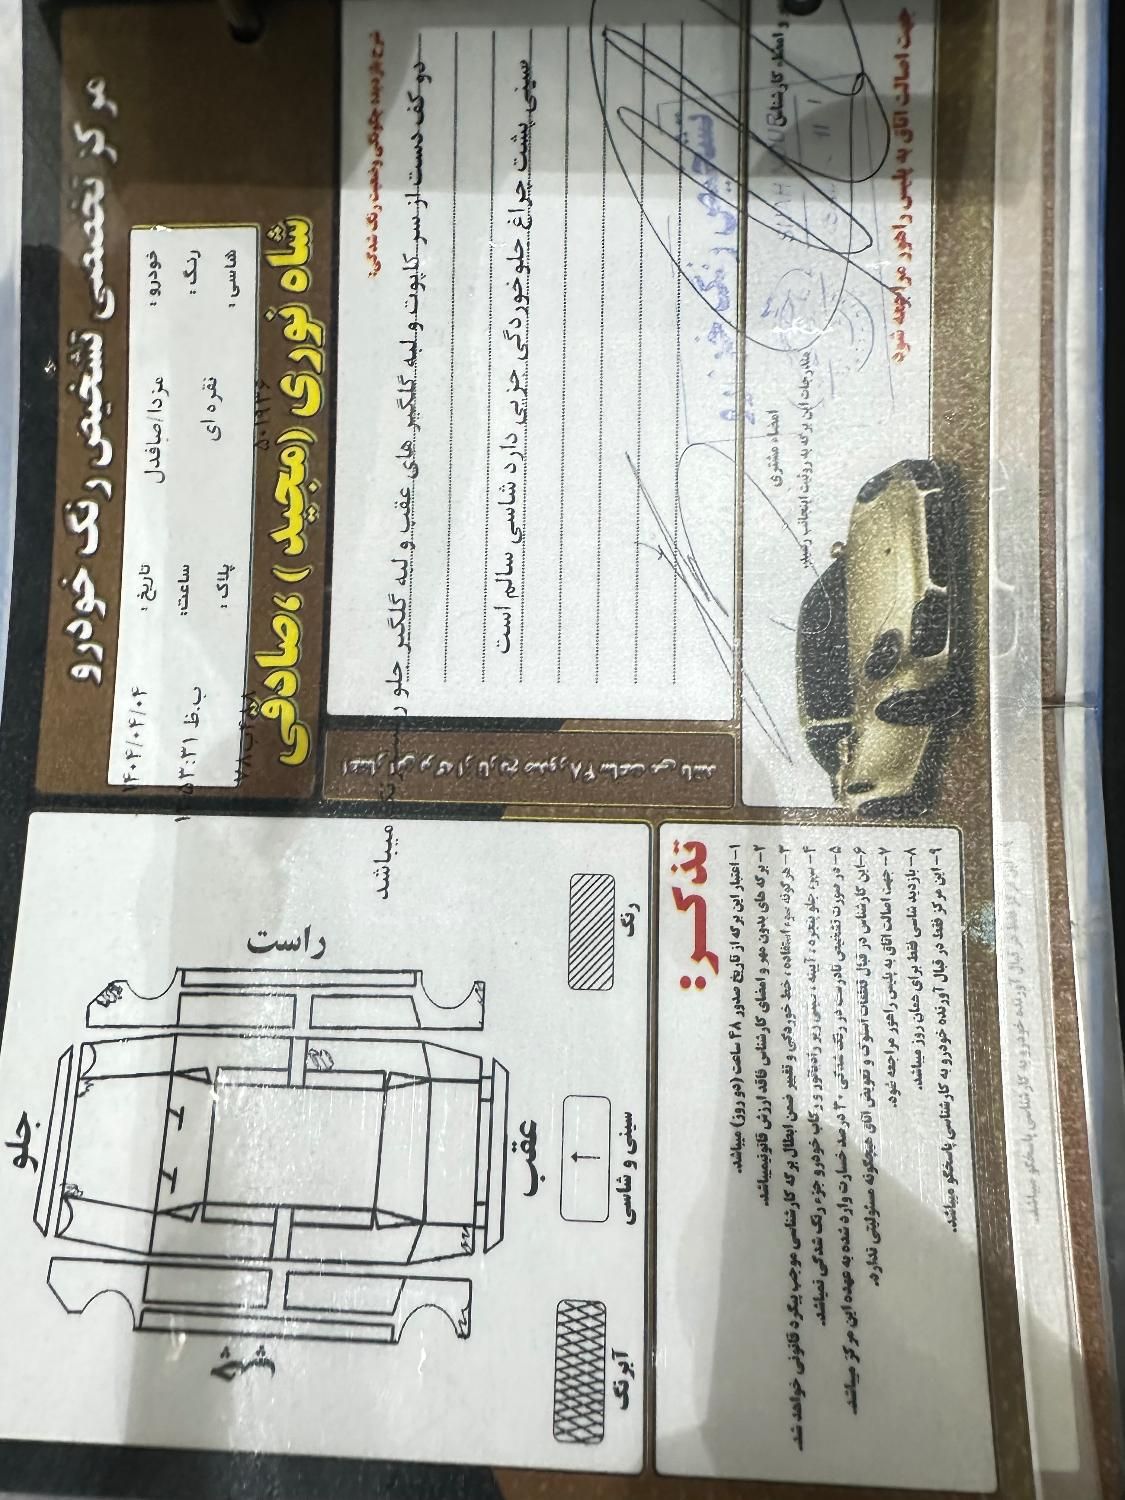 مرکز تخصصی تشخیص رنگ خودرو
خودرو: مزدا/صافدل تاریخ: ۱۴۰۴/۰۴/۰۴
رنگ: نقره ای ساعت: ۳:۳۱ ب.ظ
شاسی: پلاک:
شاه نوری (مجید) ،صادقی
شرح بازدید چگونگی وضعیت رنگ شدگی:
دو کف دست از سر کاپوت و لبه گلگیر های عقب و لبه گلگیر جلو
میباشد
سینی پشت چراغ جلو خوردگی جزیی دارد شاسی سالم است
اعتبار این برگه از تاریخ صدور ۴۸ ساعت می باشد
و امضاء کارشناس
امضاء مشتری
مندرجات این برگه به رؤیت اینجانب رسید.
جهت اصالت اتاق به پلیس راهور مراجعه شود
جلو
راست
چپ
عقب
رنگ
سینی و شاسی
آبرنگ
تذکر:
۱- اعتبار این برگه از تاریخ صدور ۴۸ ساعت (دو روز) میباشد.
۲- برگه های بدون مهر و امضای کارشناس فاقد ارزش قانونیمیباشد.
۳- هر گونه سوء استفاده ، خط خوردگی و تغییر ضمن ابطال برگه کارشناسی موجب پیگرد قانونی خواهد شد.
۴- سپر جلو پنجره ، آیینه ، سینی زیر رادیاتور و رکاب خودرو جزء رنگ شدگی نمیباشد.
۵- در صورت تشخیص نادرست در رنگ شدگی ۳۰ درصد خسارت وارد شده به عهده این مرکز میباشد.
۶- این کارشناس در قبال قطعات استوک و تعویض اتاق هیچگونه مسئولیتی ندارد.
۷- جهت اصالت اتاق به پلیس راهور مراجعه شود.
۸- بازدید شاسی فقط برای همان روز میباشد.
۹- این مرکز فقط در قبال آورنده خودرو به کارشناسی پاسخگو میباشد.